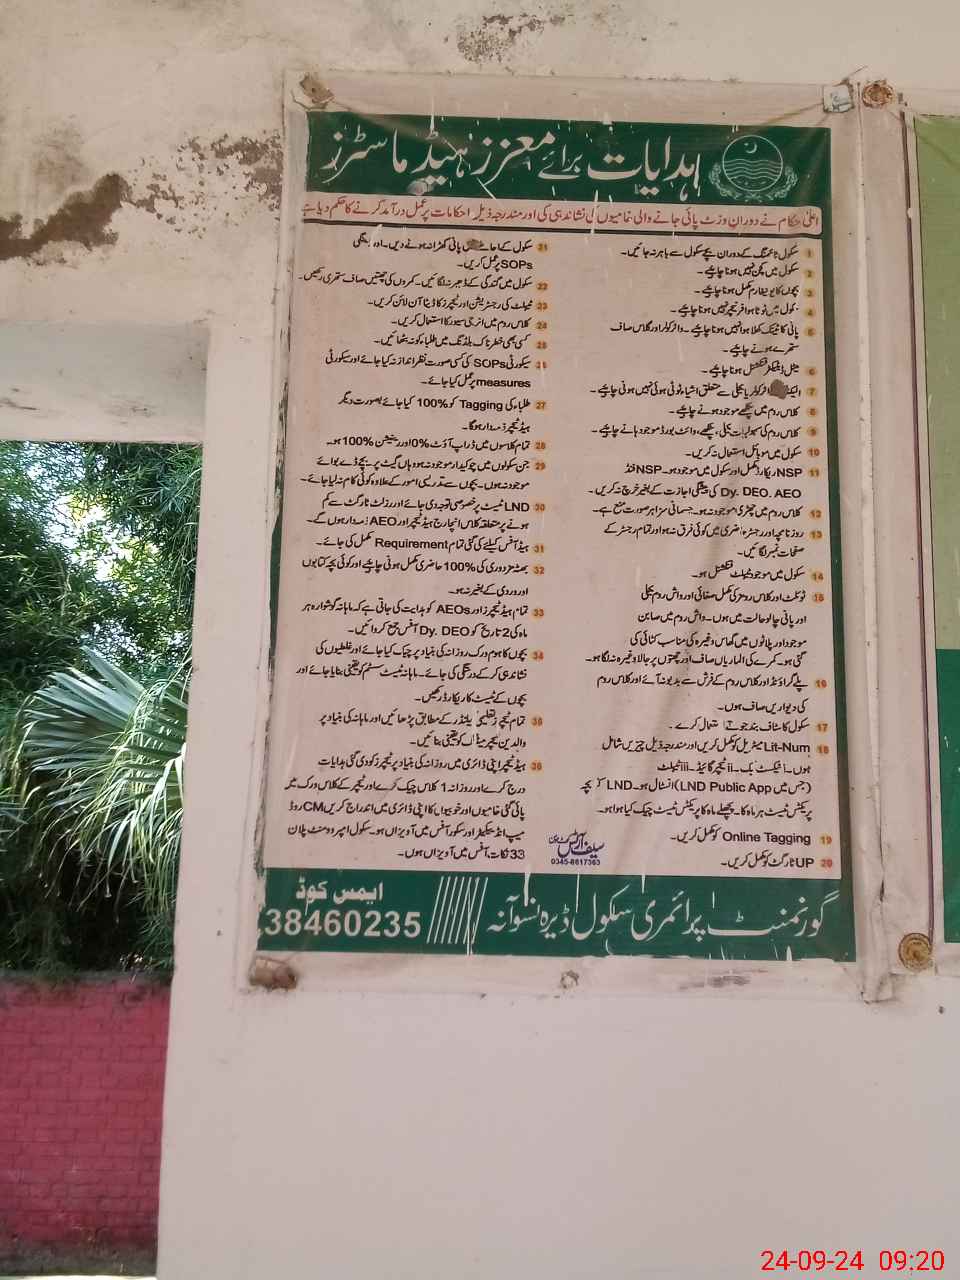 ہدایات برائے معزز ہیڈ ماسٹرز
اعلیٰ حکام نے دوران وزٹ پائی جانے والی خامیوں کی نشاندہی کی اور مندرجہ ذیل احکامات پر عمل درآمد کرنے کا حکم دیا ہے
1 سکول ٹائمنگ کے دوران بچے سکول سے باہر نہ جائیں۔
2 سکول میں کچن نہیں ہونا چاہیے۔
3 بچوں کا یونیفارم مکمل ہونا چاہیے۔
4 سکول میں ٹوٹا ہوا فرنیچر نہیں ہونا چاہیے۔
5 پانی کا ٹینک کھلا ہوا نہیں ہونا چاہیے۔ واٹر کولر اور گلاس صاف
ستھرے ہونے چاہیے۔
6 میٹل ڈیٹیکٹر فنکشنل ہونا چاہیے۔
7 واٹر کولر یا بجلی سے متعلق اشیاء ٹوٹی ہوئی نہیں ہونی چاہیے۔
8 کلاس روم میں پنکھے موجود ہونے چاہیے۔
9 کلاس روم کی سہولیات بجلی، پنکھے، وائٹ بورڈ موجود ہونے چاہیے۔
10 سکول میں موبائل استعمال نہ کریں۔
11 NSP ریکارڈ مکمل اور سکول میں موجود ہو۔ NSP فنڈ
Dy. DEO, AEO کی پیشگی اجازت کے بغیر خرچ نہ کریں۔
12 کلاس روم میں چھڑی موجود نہ ہو۔ جسمانی سزا ہر صورت منع ہے۔
13 روزنامچہ اور رجسٹر حاضری میں کوئی فرق نہ ہو اور تمام رجسٹر کے
صفحات نمبر لگائیں۔
14 سکول میں موجود ٹیبلٹ فنکشنل ہو۔
15 ٹوئلٹ اور کلاس رومز کی مکمل صفائی اور واش روم بجلی
اور پانی چالو حالت میں ہوں۔ واش روم میں صابن
موجود اور پلاٹوں میں گھاس وغیرہ کی مناسب کٹائی کی
گئی ہو۔ کمرے کی الماریاں صاف اور چھتوں پر جالا وغیرہ نہ لگا ہو۔
16 پلے گراؤنڈ اور کلاس روم کے فرش سے بدبو نہ آئے اور کلاس روم
کی دیواریں صاف ہوں۔
17 سکول کا سٹاف بند جوتے استعمال کرے۔
18 Lit-Num میٹریل کو مکمل کریں اور مندرجہ ذیل چیزیں شامل
ہوں۔ i ٹیکسٹ بک۔ ii ٹیچر گائیڈ۔ iii ٹیبلٹ
(جس میں LND Public App) انسٹال ہو۔ LND کا بچہ
پریکٹس ٹیسٹ ہر ماہ کا۔ پچھلے ماہ کا پریکٹس ٹیسٹ چیک کیا ہوا ہو۔
19 Online Tagging کو مکمل کریں۔
20 UP ٹارگٹ کو مکمل کریں۔
21 سکول کے احاطے میں پانی کھڑا نہ ہونے دیں۔ اور ڈینگی
SOPs پر عمل کریں۔
22 سکول میں گندگی کے ڈھیر نہ لگائیں۔ کمروں کی چھتیں صاف ستھری رکھیں۔
23 ٹیبلٹ کی رجسٹریشن اور ٹیچرز کا ڈیٹا آن لائن کریں۔
24 کلاس روم میں انرجی سیور کا استعمال کریں۔
25 کسی بھی خطرناک بلڈنگ میں طلباء کو نہ بٹھائیں۔
26 سیکورٹی SOPs کی کسی صورت نظر انداز نہ کیا جائے اور سیکورٹی
measures پر عمل کیا جائے۔
27 طلباء کی Tagging کو 100% کیا جائے بصورت دیگر
ہیڈ ٹیچر ذمہ دار ہوگا۔
28 تمام کلاسوں میں ڈراپ آؤٹ 0% اور ریٹینشن 100% ہو۔
29 جن سکولوں میں چوکیدار موجود نہ ہو وہاں گیٹ پر بچے ڈے بوائے
موجود نہ ہوں۔ بچوں سے تدریسی امور کے علاوہ کوئی کام نہ لیا جائے۔
30 LND ٹیسٹ پر خصوصی توجہ دی جائے اور رزلٹ ٹارگٹ سے کم
ہونے پر متعلقہ کلاس انچارج ہیڈ ٹیچر اور AEO ذمہ دار ہوں گے۔
31 ہیڈ آفس کیلئے کی گئی تمام Requirement مکمل کی جائے۔
32 بھٹہ مزدوری کی 100% حاضری مکمل ہونی چاہیے اور کوئی بچہ کتابوں
اور وردی کے بغیر نہ ہو۔
33 تمام ہیڈ ٹیچرز اور AEOs کو ہدایت کی جاتی ہے کہ ماہانہ گوشوارہ ہر
ماہ کی 2 تاریخ کو Dy. DEO آفس جمع کروائیں۔
34 بچوں کا ہوم ورک روزانہ کی بنیاد پر چیک کیا جائے اور غلطیوں کی
نشاندہی کر کے درستگی کی جائے۔ ماہانہ ٹیسٹ سسٹم کو یقینی بنایا جائے اور
بچوں کے ٹیسٹ کا ریکارڈ رکھیں۔
35 تمام ٹیچرز تعلیمی کیلنڈر کے مطابق پڑھائیں اور ماہانہ کی بنیاد پر
والدین ٹیچر میٹنگ کو یقینی بنائیں۔
36 ہیڈ ٹیچر اپنی ڈائری میں روزانہ کی بنیاد پر ٹیچرز کو دی گئی ہدایات
درج کرے اور روزانہ 1 کلاس چیک کرے اور ٹیچر کے کلاس ورک میں
پائی گئی خامیوں اور خوبیوں کا اپنی ڈائری میں اندراج کریں CM روڈ
میپ انڈیکیٹر اور سکور آفس میں آویزاں ہو۔ سکول امپروومنٹ پلان
33 نکات آفس میں آویزاں ہوں۔
سیف آرٹس
0345-8617363
گورنمنٹ پرائمری سکول ڈیرہ نسوآنہ
ایمس کوڈ
38460235
24-09-24 09:20